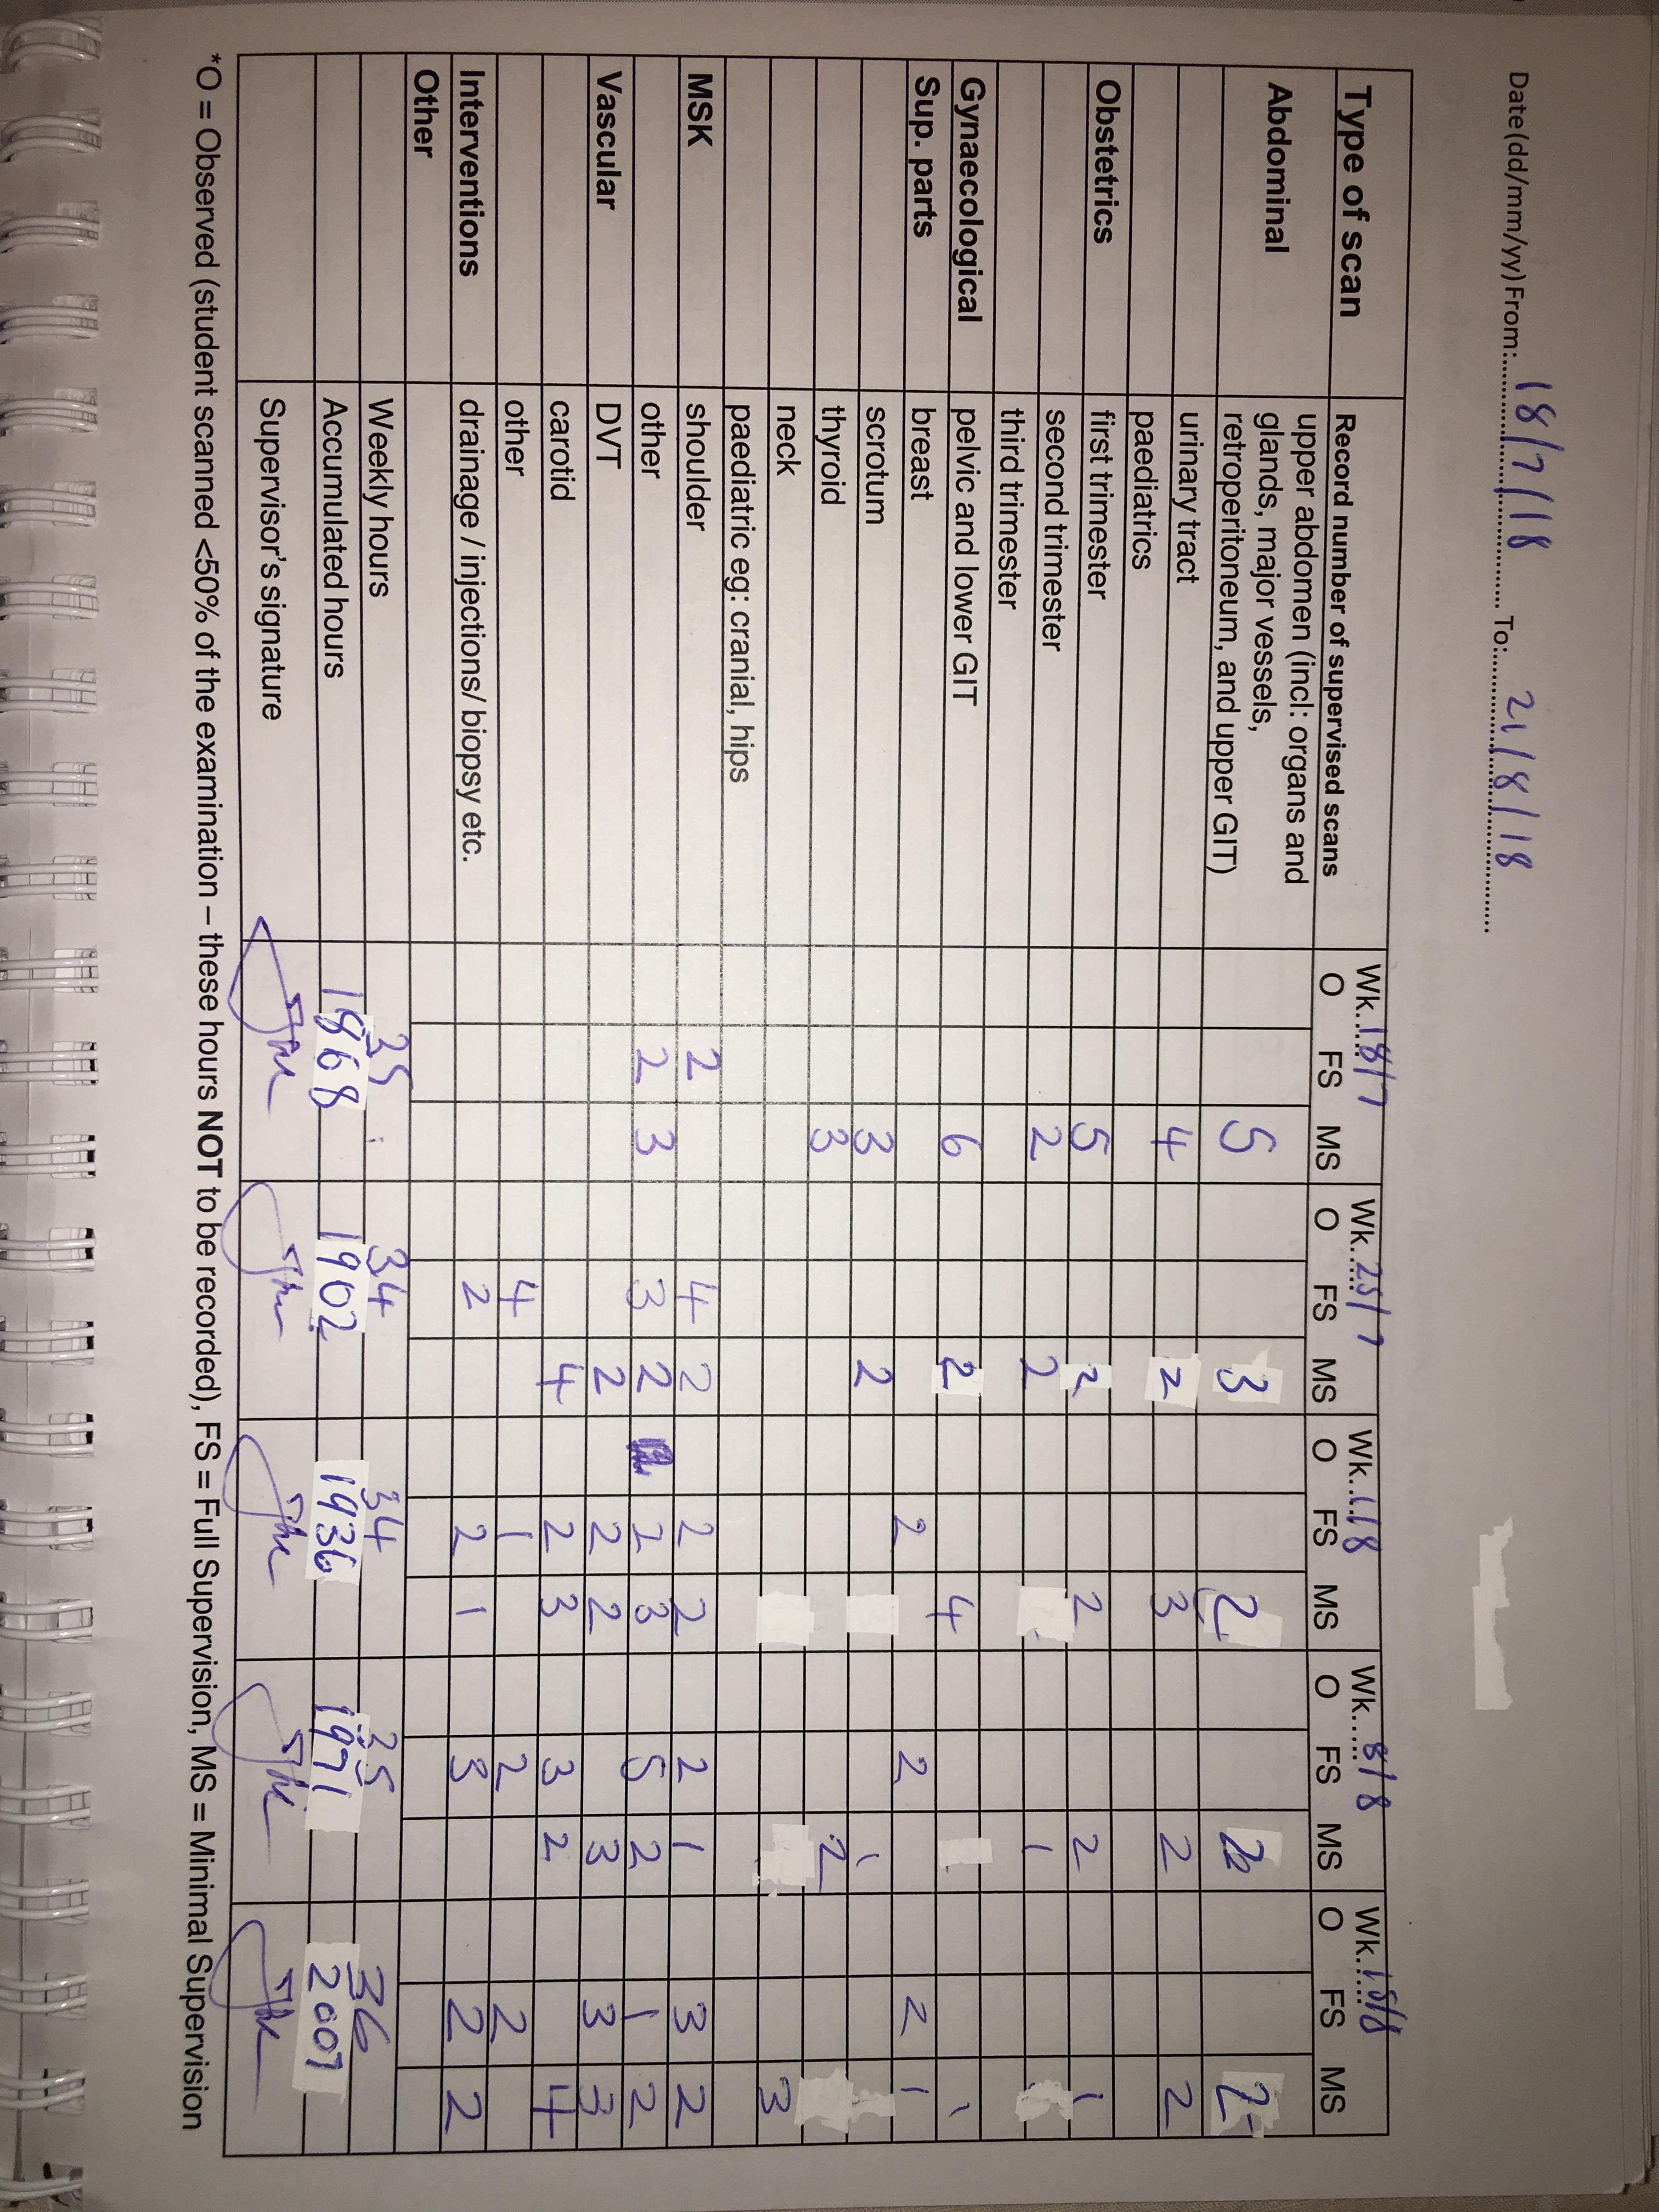 Date(dd/mm/yy) From:..18/7/18.............. To:....21/8/18..............
Type of scan Record number of supervised scans Wk..18/7 Wk..25/7 Wk..1/8 Wk....8/8 Wk.15/8
O FS MS O FS MS O FS MS O FS MS O FS MS
Abdominal upper abdomen (incl: organs and
glands, major vessels,
retroperitoneum, and upper GIT) 5 3 2 2 2
urinary tract 4 2 3 2 2
paediatrics
Obstetrics first trimester 5 2 2 2 1
second trimester 2 2 1
third trimester
Gynaecological pelvic and lower GIT 6 2 4 1
Sup. parts breast 2 2 2 1
scrotum 3 2 1
thyroid 3 2
neck 3
paediatric eg: cranial, hips
MSK shoulder 2 4 2 2 2 2 1 3 2
other 2 3 3 2 2 3 5 2 1 2
Vascular DVT 2 2 2 3 3 3
carotid 4 2 3 3 2 4
other 4 1 2 2
Interventions drainage / injections/ biopsy etc. 2 2 1 3 2 2
Other
Weekly hours 35 34 34 35 36
Accumulated hours 1868 1902 1936 1971 2007
Supervisor's signature
*O = Observed (student scanned <50% of the examination – these hours NOT to be recorded), FS = Full Supervision, MS = Minimal Supervision